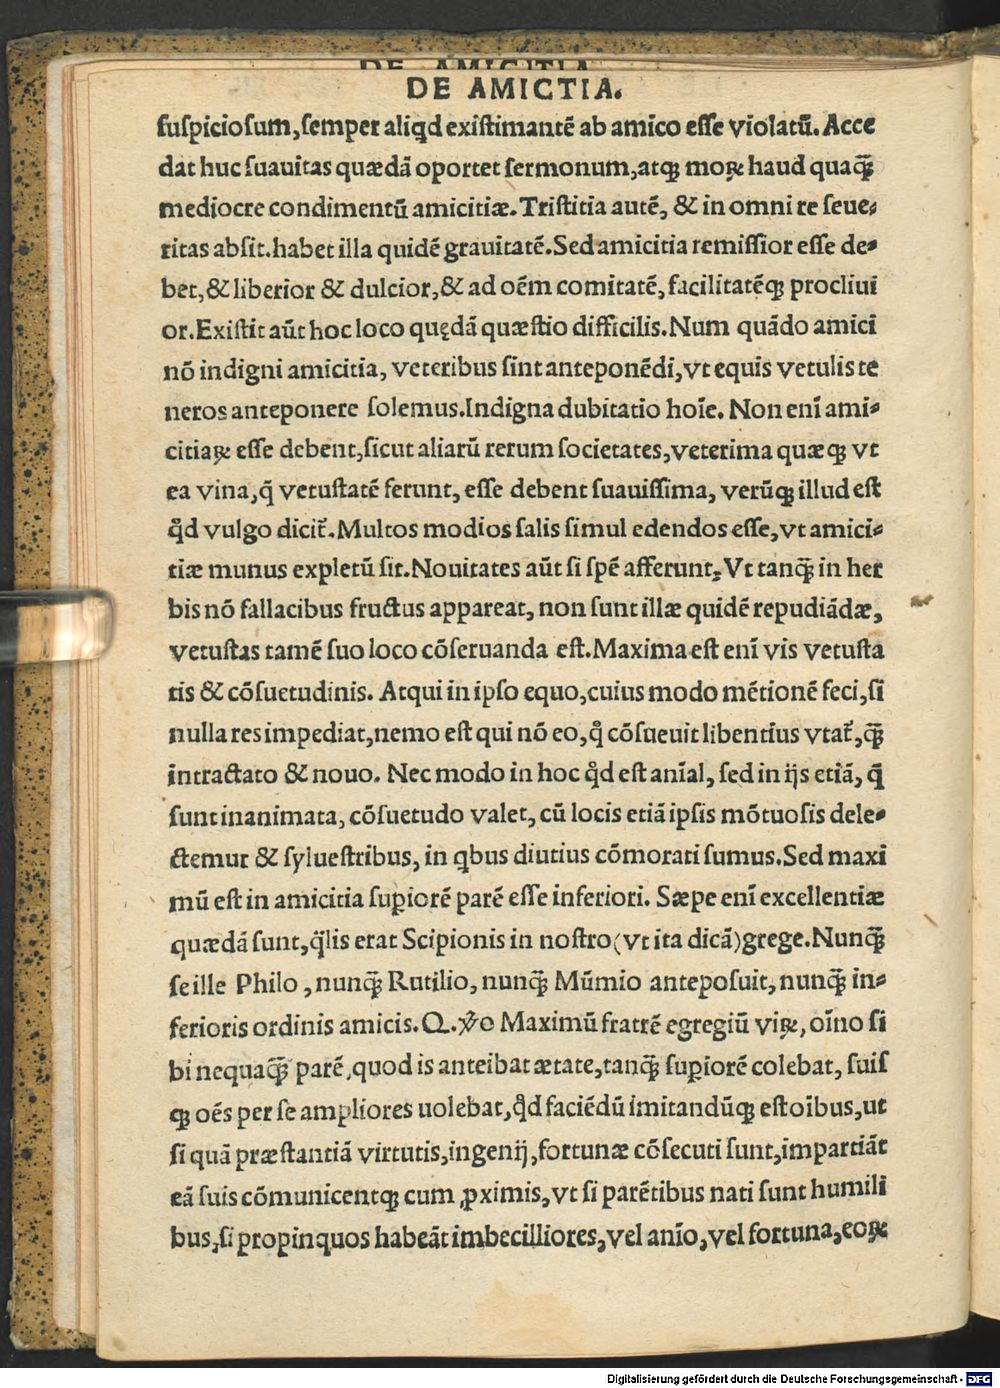 DE AMICTIA.
suspiciosum, semper aliqd existimantē ab amico esse violatū. Acce
dat huc suauitas quædā oportet sermonum, atqꝫ moꝝ haud quaq̄ꝫ
mediocre condimentū amicitiæ. Tristitia autē, & in omni re seue⸗
ritas absit. habet illa quidē grauitatē. Sed amicitia remissior esse de⸗
bet, & liberior & dulcior, & ad oēm comitatē, facilitatēqꝫ procliui
or. Existit aūt hoc loco quędā quæstio difficilis. Num quādo amici
nō indigni amicitia, veteribus sint anteponēdi, vt equis vetulis te
neros anteponere solemus. Indigna dubitatio hoīe. Non enī ami⸗
citiaꝝ esse debent, sicut aliarū rerum societates, veterima quæqꝫ vt
ea vina, q̄ vetustatē ferunt, esse debent suauissima, verūqꝫ illud est
qd̓ vulgo dicit᷑. Multos modios salis simul edendos esse, vt amici⸗
tiæ munus expletū sit. Nouitates aūt si spē afferunt, Vt tanq̄ꝫ in her
bis nō fallacibus fructus appareat, non sunt illæ quidē repudiādæ,
vetustas tamē suo loco cōseruanda est. Maxima est enī vis vetusta
tis & cōsuetudinis. Atqui in ipso equo, cuius modo mētionē feci, si
nulla res impediat, nemo est qui nō eo, q̊ cōsueuit libentius vtat᷑, q̄ꝫ
intractato & nouo. Nec modo in hoc qd̓ est anīal, sed in ijs etiā, q̄
sunt inanimata, cōsuetudo valet, cū locis etiā ipsis mōtuosis dele⸗
ctemur & syluestribus, in qbus diutius cōmorati sumus. Sed maxi
mū est in amicitia supiorē parē esse inferiori. Sæpe enī excellentiæ
quædā sunt, q̄lis erat Scipionis in nostro (vt ita dicā) grege. Nunq̄ꝫ
se ille Philo, nunq̄ꝫ Rutilio, nunq̄ꝫ Mūmio anteposuit, nunq̄ꝫ in⸗
ferioris ordinis amicis. Q. v̊o Maximū fratrē egregiū viꝝ, oīno si
bi nequaq̄ꝫ parē, quod is anteibat ætate, tanq̄ꝫ supiorē colebat, suis
qꝫ oēs per se ampliores uolebat, qd̓ faciēdū imitandūqꝫ est oībus, ut
si quā præstantiā virtutis, ingenij, fortunæ cōsecuti sunt, impartiāt
eā suis cōmunicentqꝫ cum ꝓximis, vt si parētibus nati sunt humili
bus, si propinquos habeāt imbecilliores, vel anīo, vel fortuna, eoꝝ
Digitalisierung gefördert durch die Deutsche Forschungsgemeinschaft - DFG